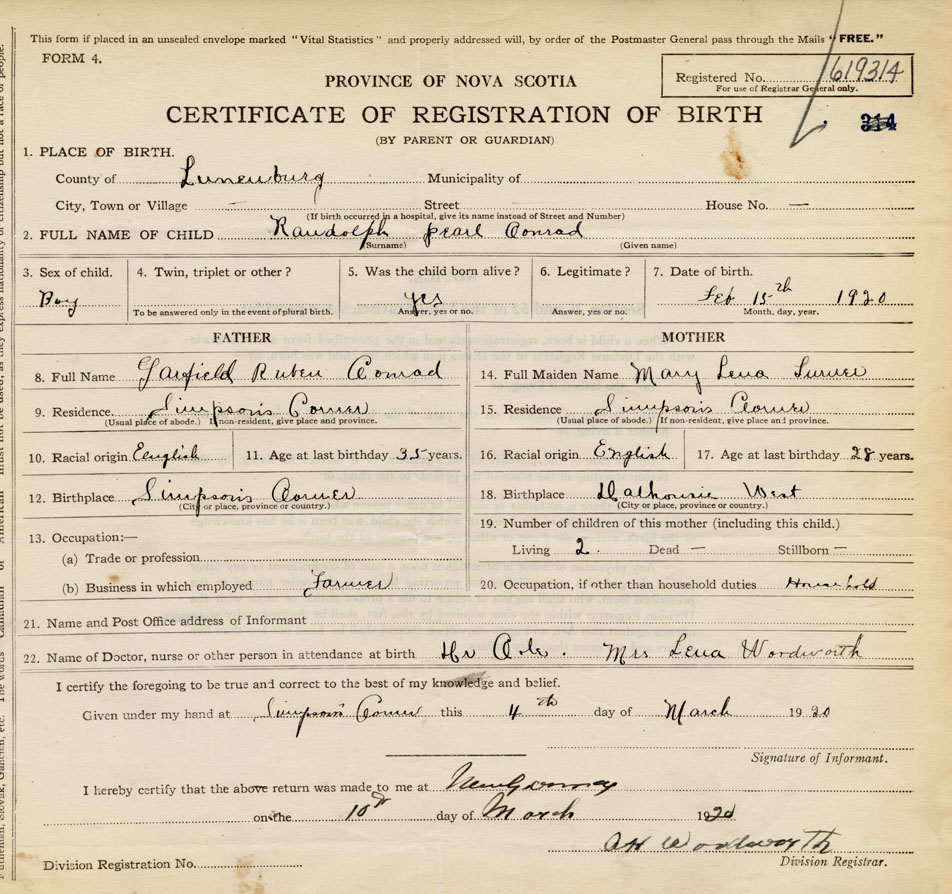 This form if placed in an unsealed envelope marked "Vital Statistics" and properly addressed will, by order of the Postmaster General pass through the Mails "FREE."
FORM 4.
Registered No. 619314
For use of Registrar General only.
PROVINCE OF NOVA SCOTIA
CERTIFICATE OF REGISTRATION OF BIRTH
314
(BY PARENT OR GUARDIAN)
1. PLACE OF BIRTH.
County of Lunenburg Municipality of
City, Town or Village — Street House No. —
(If birth occurred in a hospital, give its name instead of Street and Number)
2. FULL NAME OF CHILD Randolph pearl Conrad
(Surname) (Given name)
3. Sex of child. 4. Twin, triplet or other? 5. Was the child born alive? 6. Legitimate? 7. Date of birth.
Boy yes Feb 15th 1920
To be answered only in the event of plural birth. Answer, yes or no. Answer, yes or no. Month, day, year.
FATHER MOTHER
8. Full Name Garfield Ruben Conrad 14. Full Maiden Name Mary Lena
9. Residence. Simpson's Corner 15. Residence Simpson's Corner
(Usual place of abode.) If non-resident, give place and province. (Usual place of abode.) If non-resident, give place and province.
10. Racial origin English 11. Age at last birthday 35 years. 16. Racial origin English 17. Age at last birthday 28 years.
12. Birthplace Simpson's Corner 18. Birthplace Dalhousie West
(City or place, province or country.) (City or place, province or country.)
13. Occupation:— 19. Number of children of this mother (including this child.)
(a) Trade or profession Living 2. Dead — Stillborn —
(b) Business in which employed Farmer 20. Occupation, if other than household duties Household
21. Name and Post Office address of Informant
22. Name of Doctor, nurse or other person in attendance at birth Mrs Lena Wordworth
I certify the foregoing to be true and correct to the best of my knowledge and belief.
Given under my hand at Simpson's Corner this 4th day of March 1920
Signature of Informant.
I hereby certify that the above return was made to me at New Germany
on the 10th day of March 1920
Division Registration No.
Division Registrar.